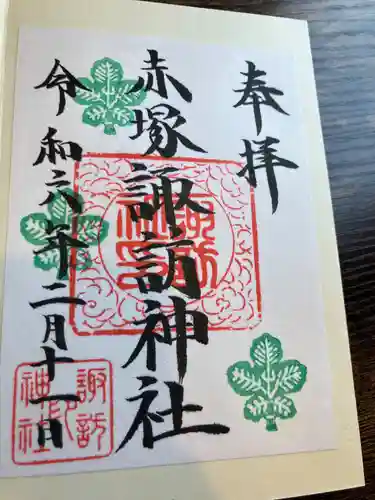 奉拝
赤塚諏訪神社
令和六年二月十一日
諏訪
神社
印